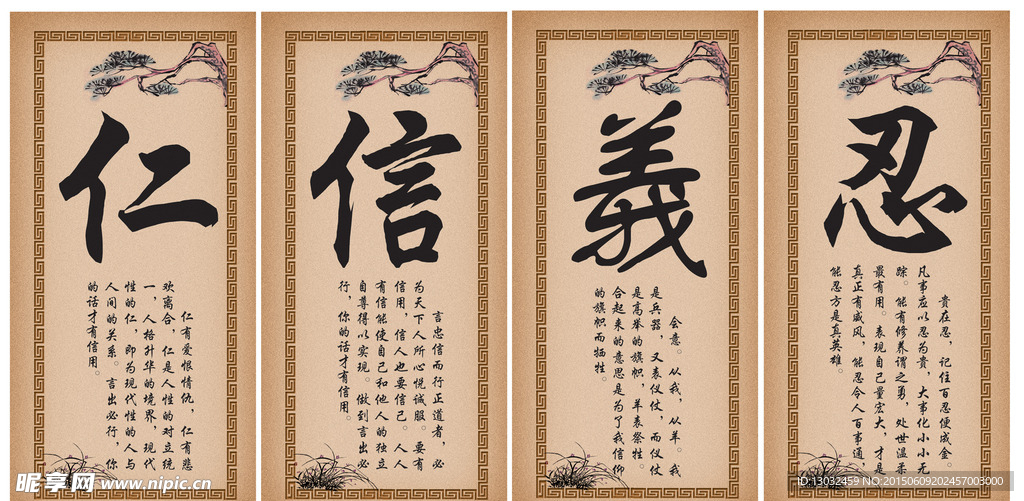 仁
仁有爱恨情仇，仁有悲
欢离合，仁是人性的对立统
一，人格升华的境界，现代
性的仁，即为现代性的人与
人间的关系。言出必行，你
的话才有信用。
信
言忠信而行正道者，必
为天下人所心悦诚服。要有
信用，信人也要信己。人人
有信能使自己和他人的独立
自尊得以实现。做到言出必
行，你的话才有信用。
義
会意。从我，从羊。我
是兵器，又表仪仗，而仪仗
是高举的旗帜，羊表祭牲。
合起来的意思是为了我信仰
的旗帜而牺牲。
忍
贵在忍，记住百忍便成金。
凡事应以忍为贵，大事化小小无
踪。能有修养谓之勇，处世温柔
最有用。表现自己量宏大，才是
真正有威风，能忍令人百事通，
能忍方是真英雄。
昵享网 www.nipic.cn
ID:13032459 NO:20150609202457003000